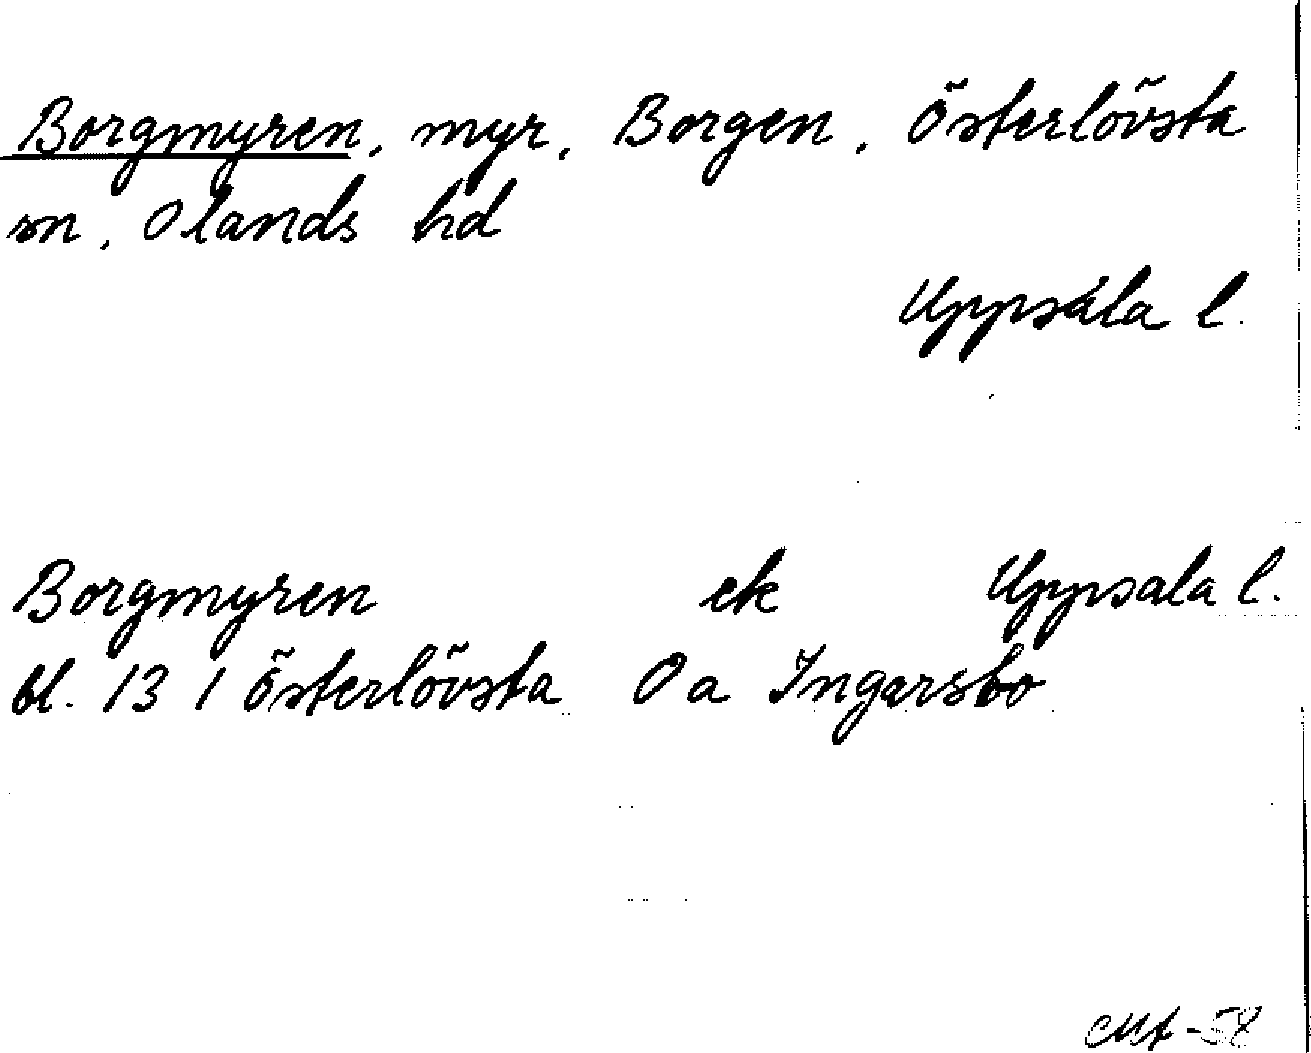 Borgmyren, myr, Borgen, Österlövsta
sn, Olands hd
Uppsala l.
Borgmyren ek Uppsala l.
bl. 13 I Österlövsta Oa Ingarsbo
-58